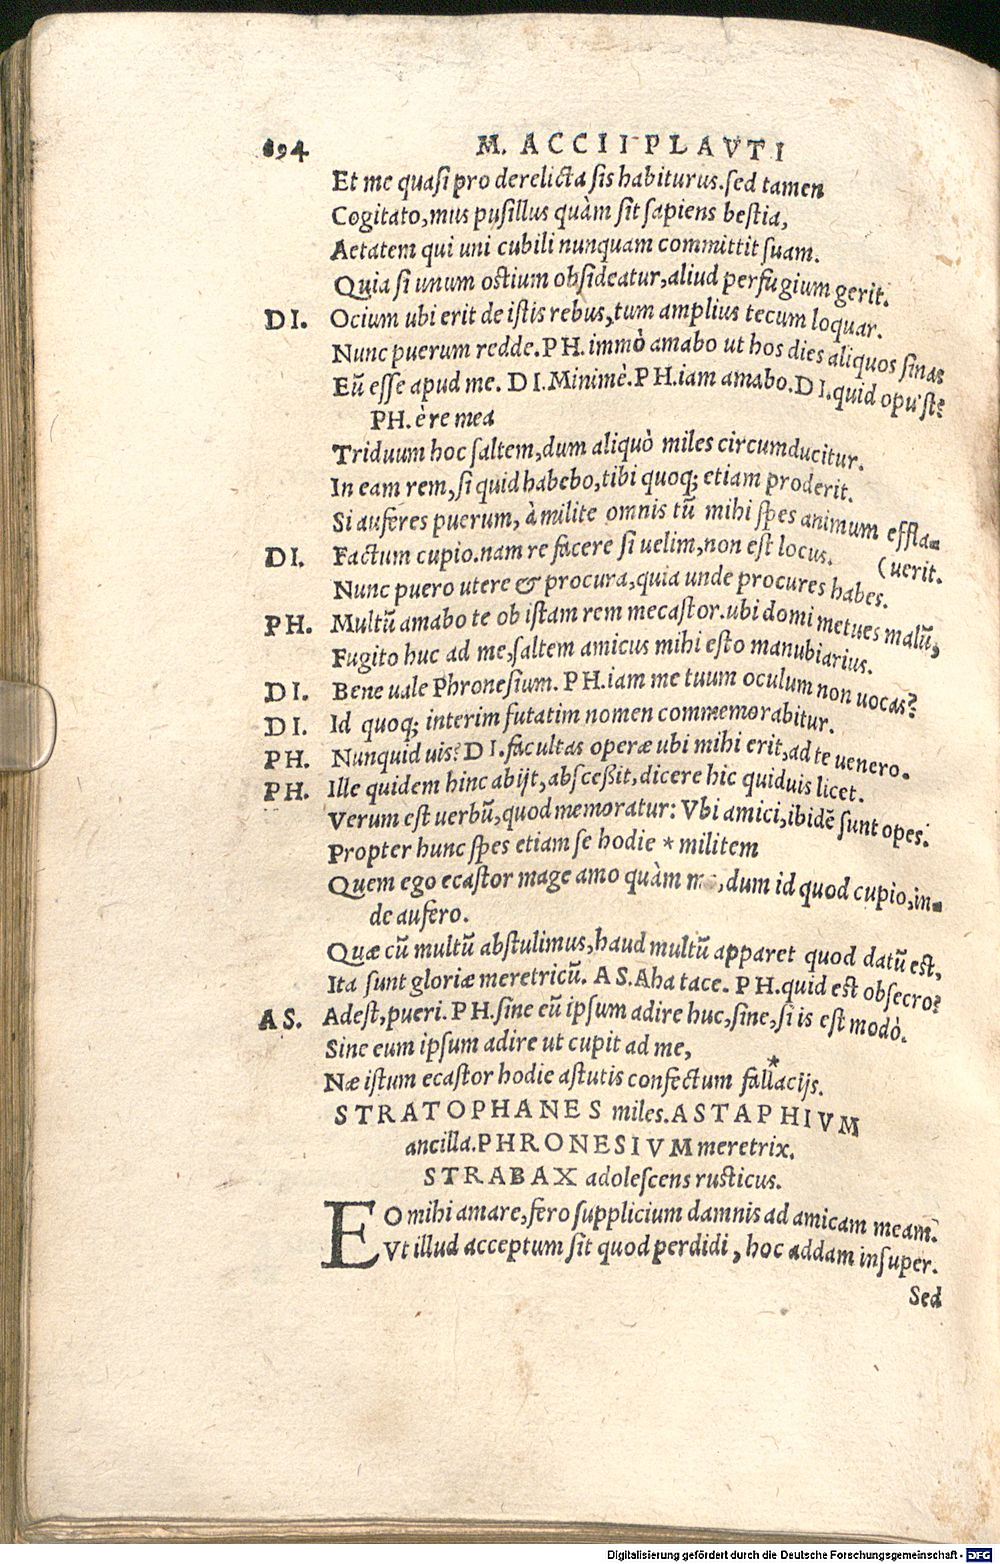 894 M. ACCII PLAVTI
Et me quasi pro derelicta sis habiturus.sed tamen
Cogitato,mus pusillus quàm sit sapiens bestia,
Aetatem qui uni cubili nunquam committit suam.
Quia si unum ostium obsideatur,aliud perfugium gerit.
DI. Ocium ubi erit de istis rebus,tum amplius tecum loquar.
Nunc puerum redde.PH.immò amabo ut hos dies aliquos sinas
Eũ esse apud me. DI.Minimè.PH.iam amabo.DI.quid opu'st?
PH.è re mea
Triduum hoc saltem,dum aliquò miles circumducitur.
In eam rem,si quid habebo,tibi quoq; etiam proderit.
Si auferes puerum, à milite omnis tũ mihi spes animum effla-
DI. Factum cupio.nam re facere si uelim,non est locus. (uerit.
Nunc puero utere & procura,quia unde procures habes.
PH. Multũ amabo te ob istam rem mecastor.ubi domi metues malũ,
Fugito huc ad me,saltem amicus mihi esto manubiarius.
DI. Bene uale Phronesium. PH.iam me tuum oculum non uocas?
DI. Id quoq; interim futatim nomen commemorabitur.
PH. Nunquid uis? DI.facultas operæ ubi mihi erit,ad te uenero.
PH. Ille quidem hinc abijt,abscessit,dicere hic quiduis licet.
Verum est uerbũ,quod memoratur: Vbi amici,ibidẽ sunt opes.
Propter hunc spes etiam se hodie * militem
Quem ego ecastor mage amo quàm ,dum id quod cupio,in-
de aufero.
Quæ cũ multũ abstulimus,haud multũ apparet quod datũ est,
Ita sunt gloriæ meretricũ. AS.Aha tace. PH.quid est obsecro?
AS. Adest,pueri. PH.sine eũ ipsum adire huc,sine,si is est modò.
Sine eum ipsum adire ut cupit ad me,
*
Næ istum ecastor hodie astutis confectum fallacijs.
STRATOPHANES miles.ASTAPHIVM
ancilla.PHRONESIVM meretrix.
STRABAX adolescens rusticus.
EO mihi amare,fero supplicium damnis ad amicam meam.
Vt illud acceptum sit quod perdidi, hoc addam insuper.
Sed
Digitalisierung gefördert durch die Deutsche Forschungsgemeinschaft - DFG